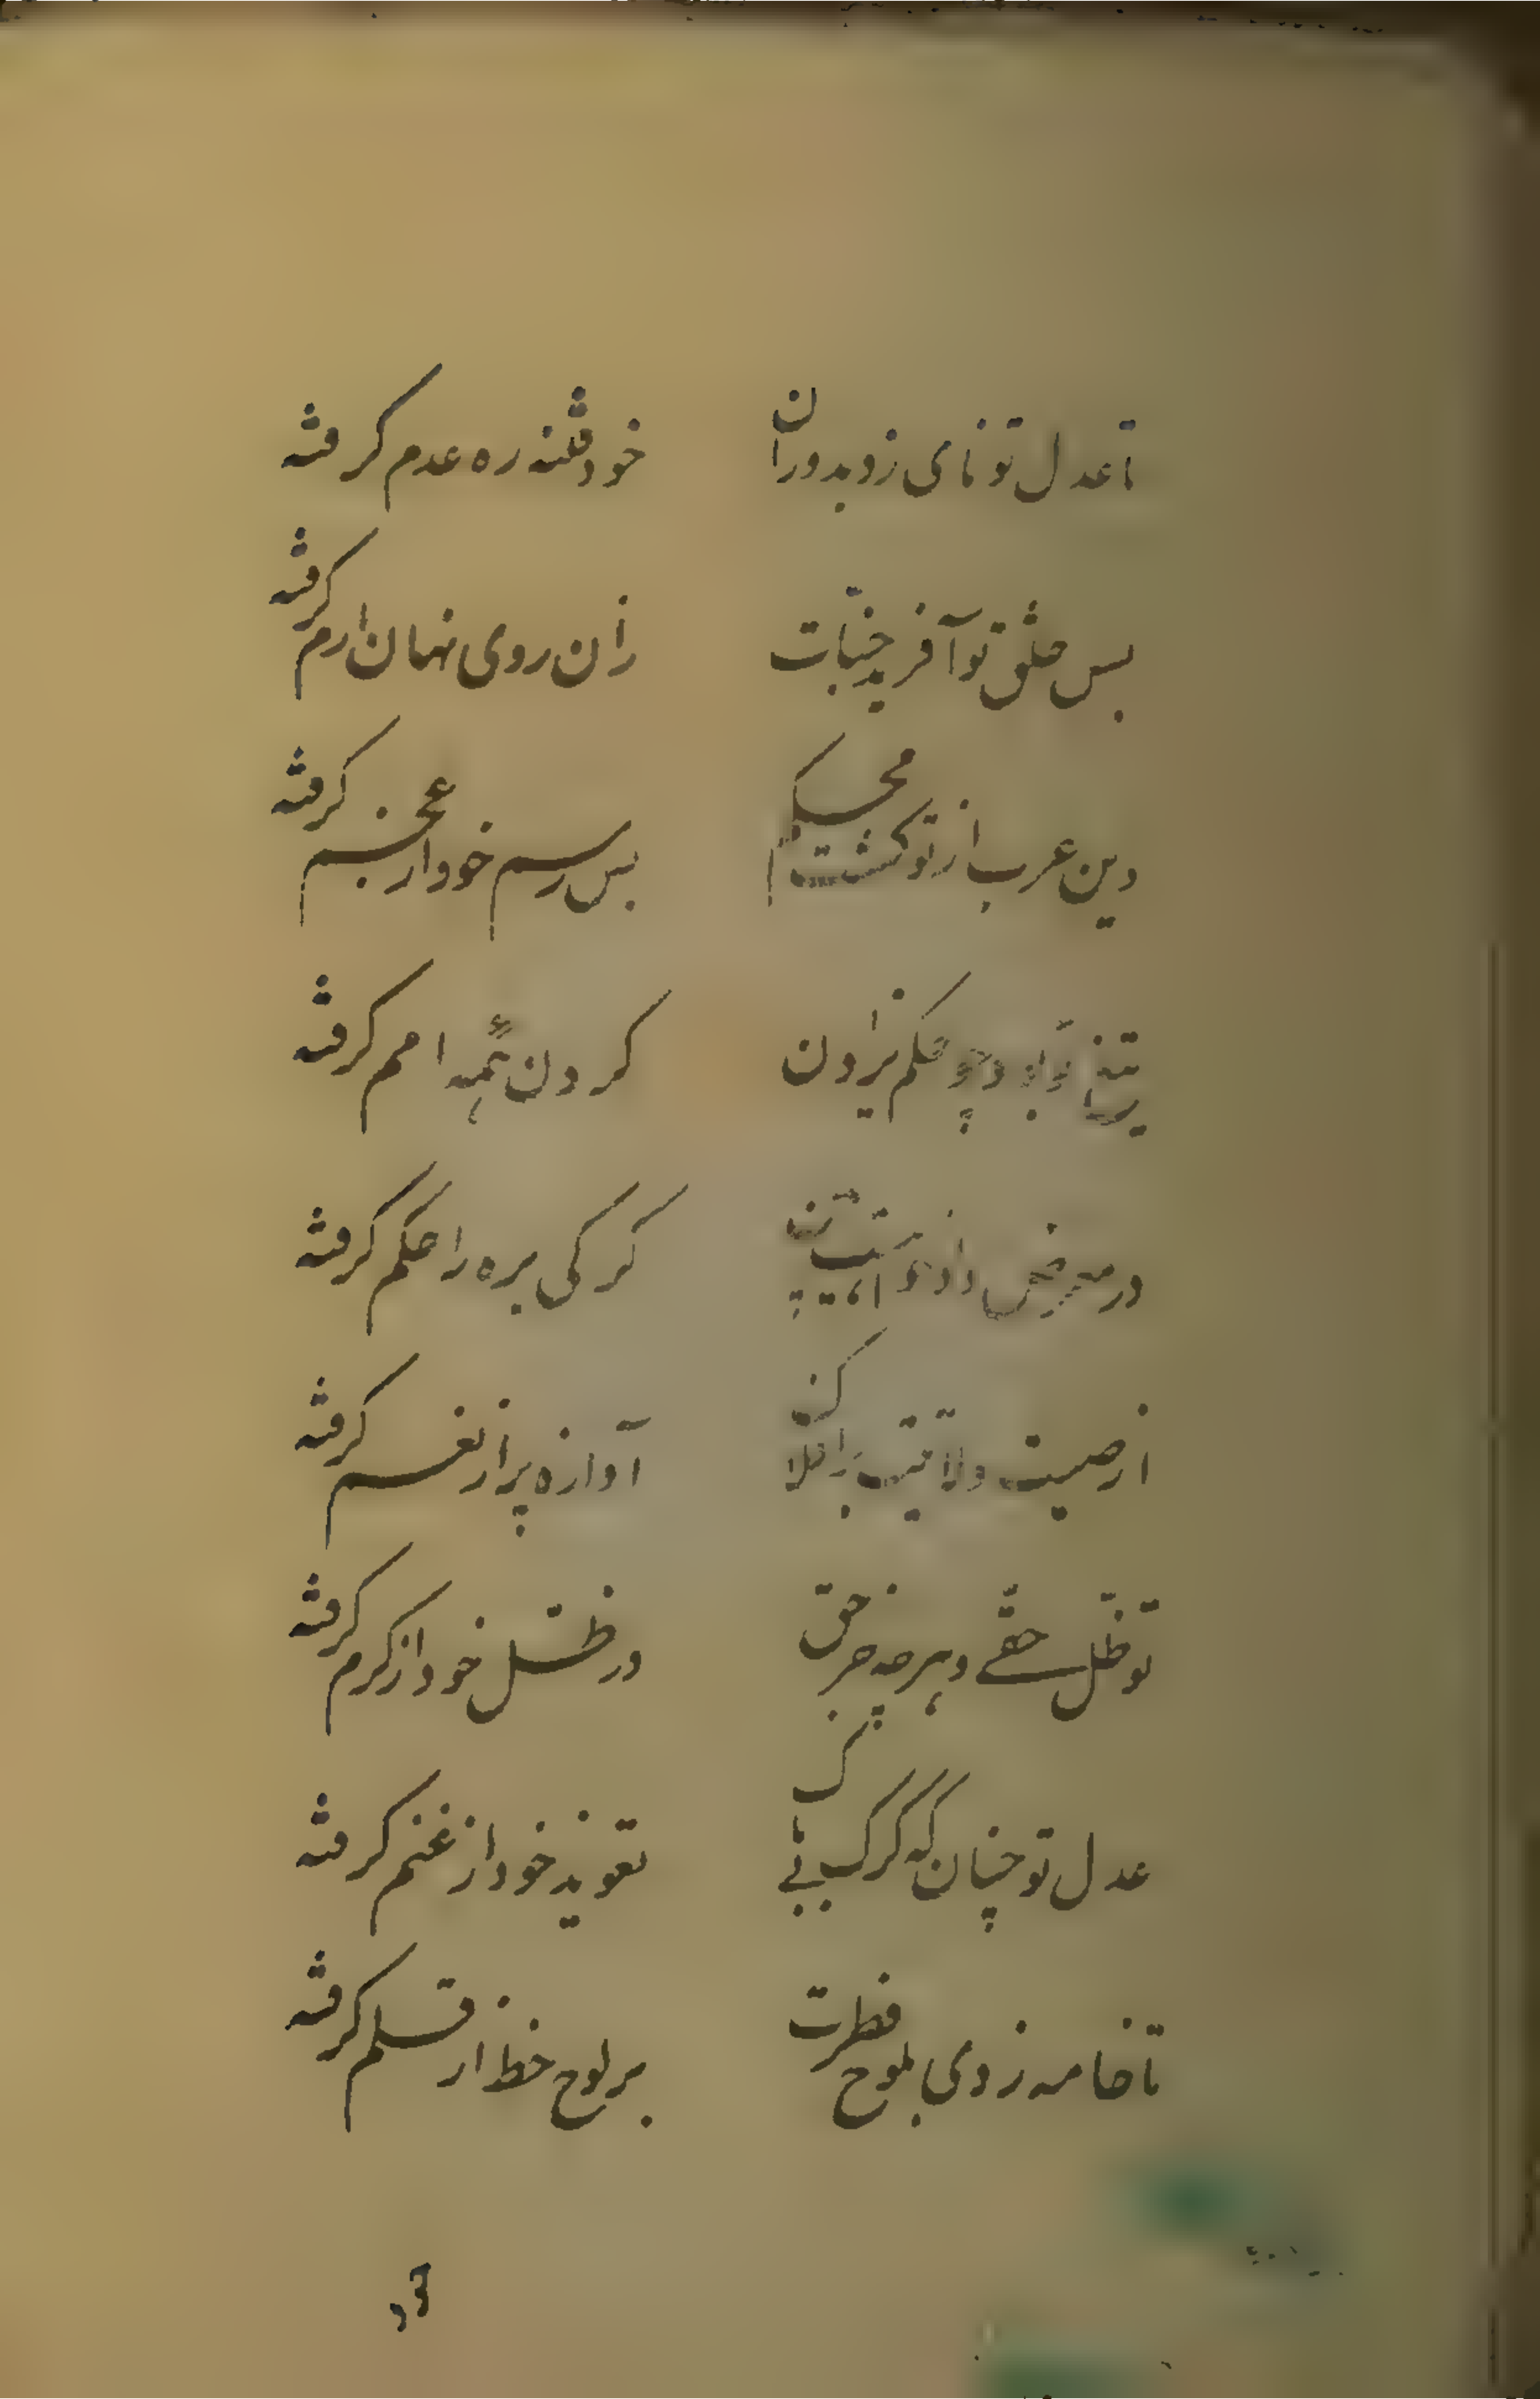 تا عدل تو نای زد بدوران خود فتنه ره عدم کرفته
بس خلق تو آفرید جنّات زان روی نهان ارم کرفته
دین عرب از تو کشت محکم بس رسم خود از عجم کرفته
تیغ تو چو حکم یزدان کردن همه امم کرفته
در داد کرکی بره را حکم کرفته
از صیت ولایتت آوازه پر از نغم کرفته
تو ظلّ حقّی و هرچه جز حق در ظلّ خود از کرم کرفته
عدل تو چنان که کرک بی تعویذ خود از غنم کرفته
تا خامه زدی بلوح فطرت بر لوح خط از قلم کرفته